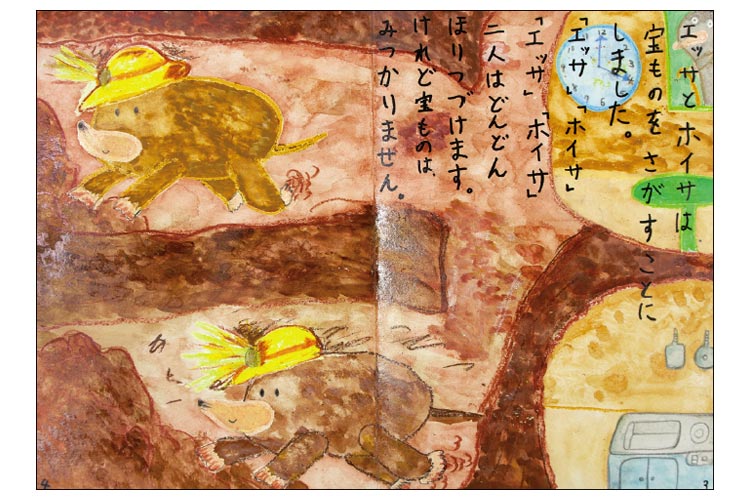 エッサとホイサは
宝ものを さがすことに
しました。
「エッサ」「ホイサ」
「エッサ」「ホイサ」
二人はどんどん
ほりつづけます。
けれど宝ものは、
みつかりません。
4
3